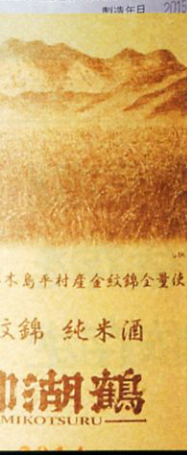 製造年日 2015
木島平村産金紋錦全量使
紋錦 純米酒
御湖鶴
MIKOTSURU
2014